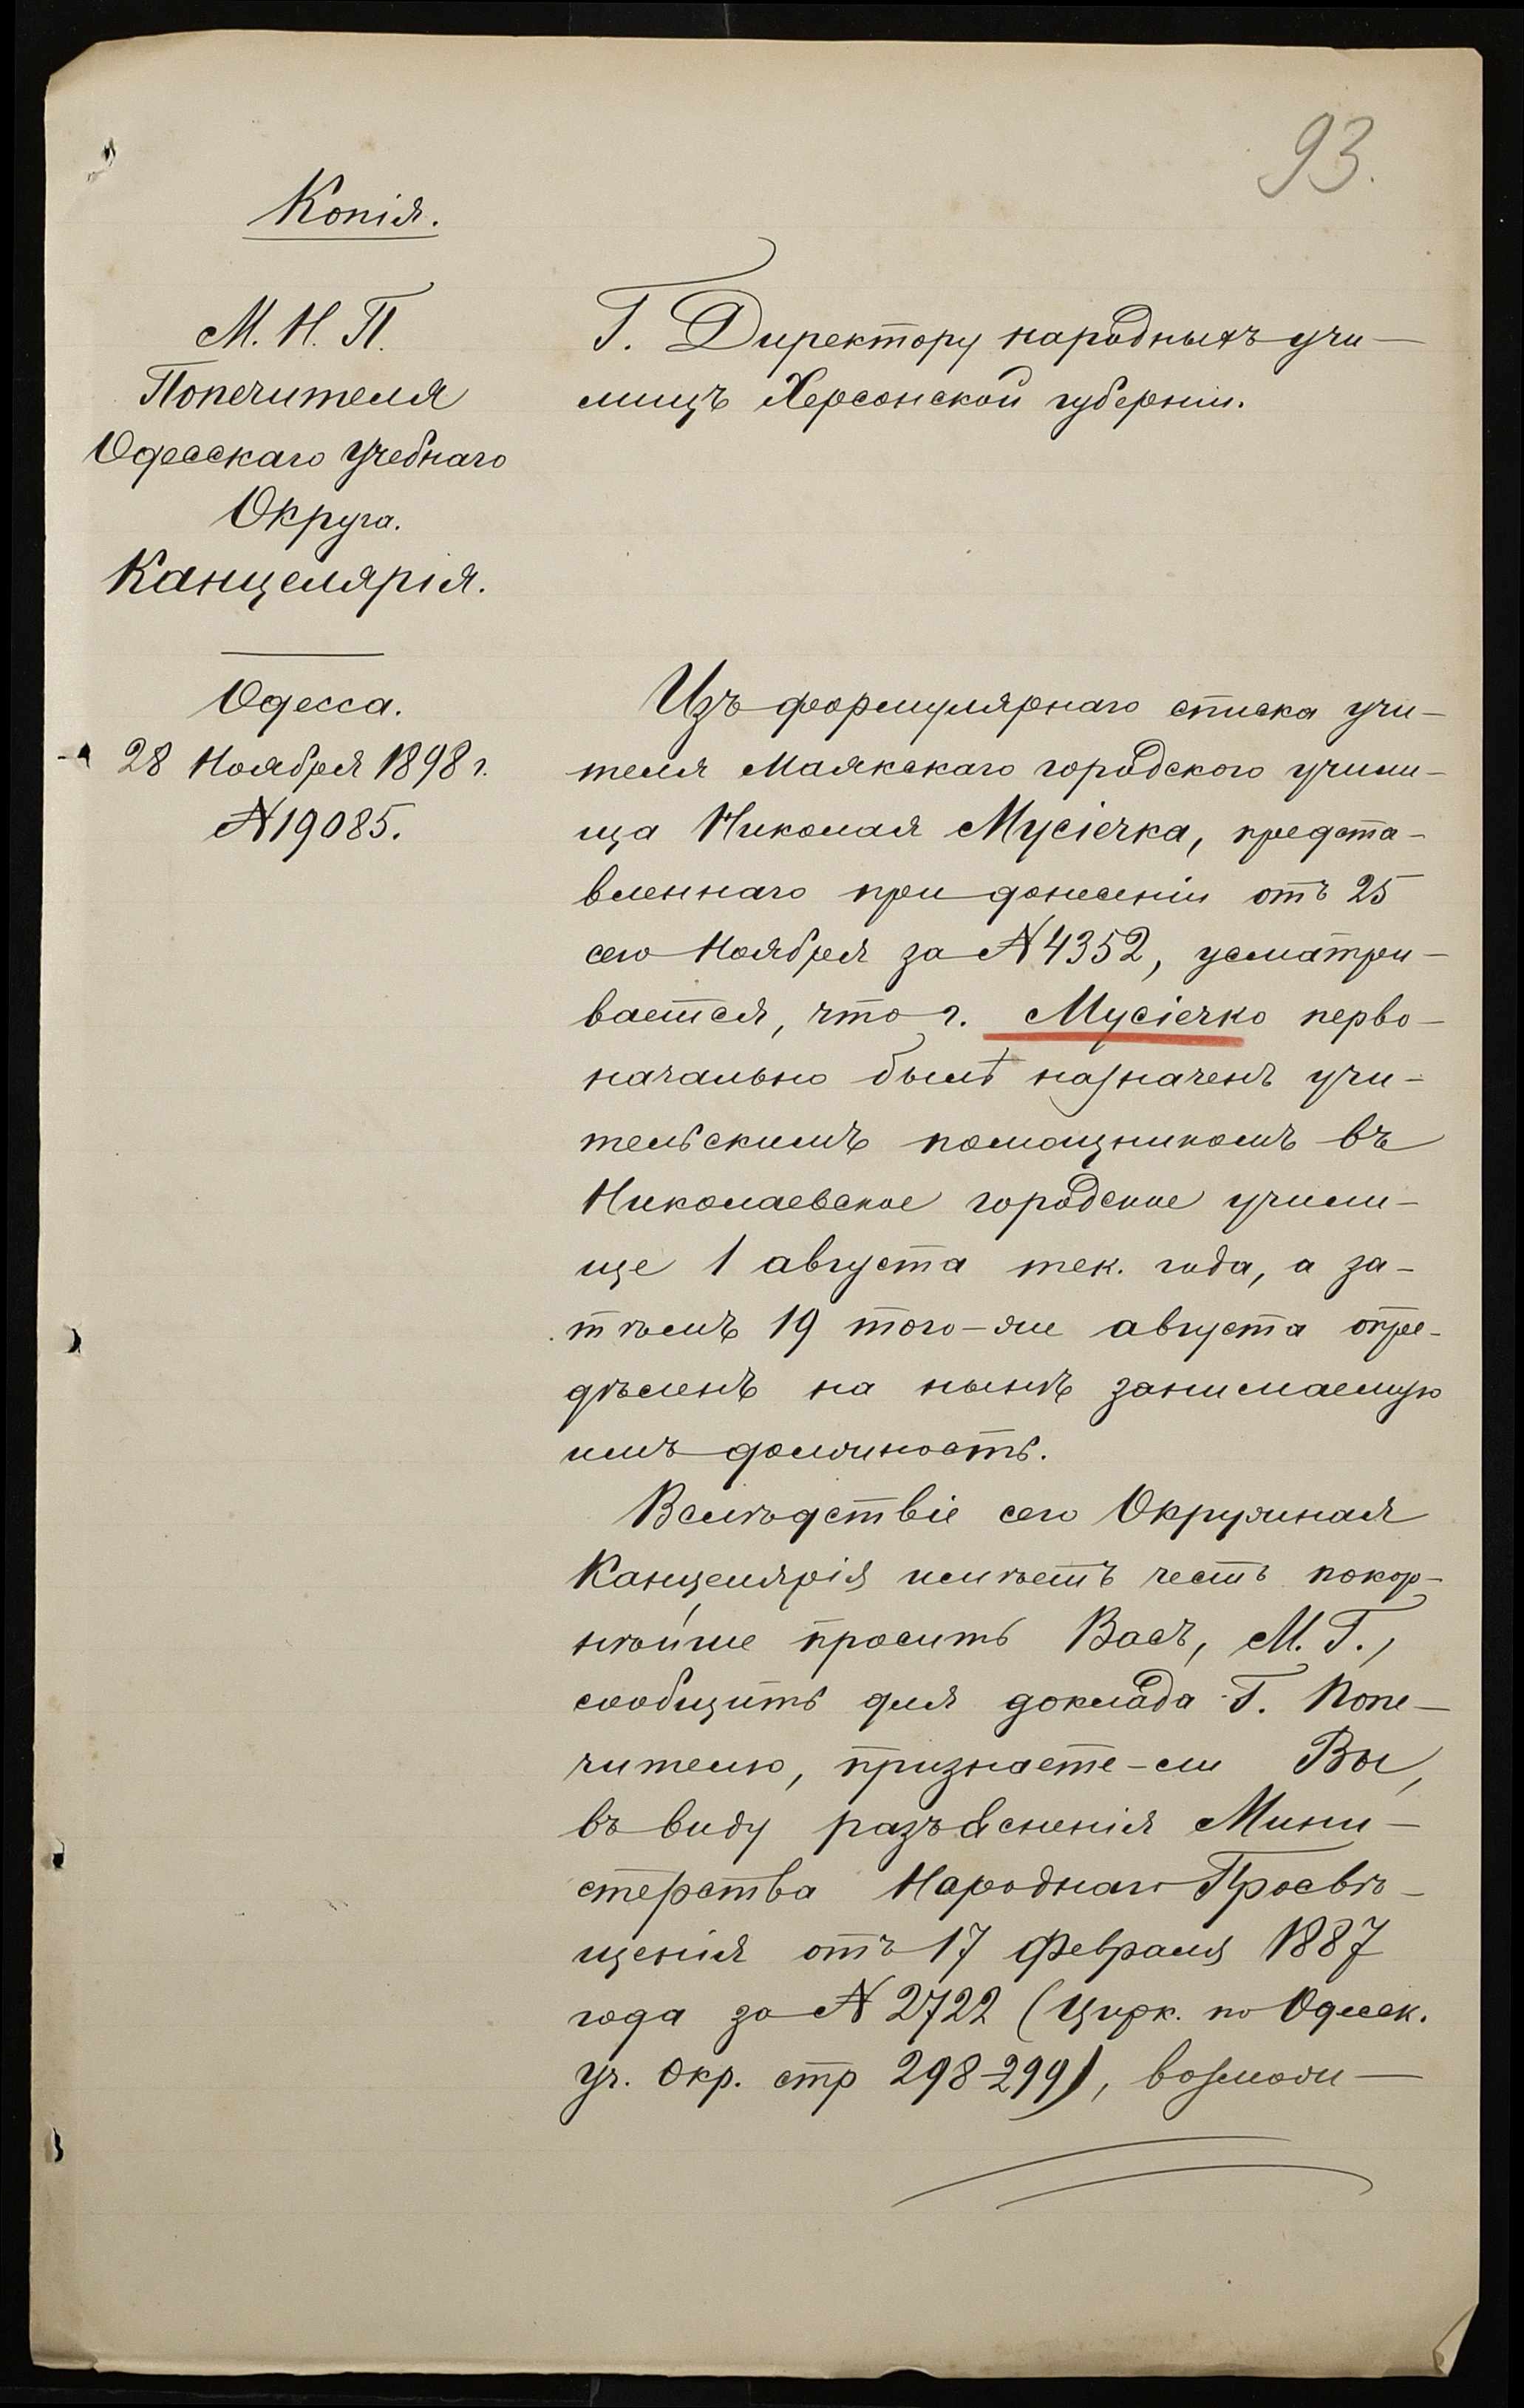 93.
Копія.
М. Н. П.
Попечителя
Одесскаго Учебнаго
Округа.
Канцелярія.
Одесса.
28 Ноября 1898 г.
№ 19085.
Г. Директору народныхъ учи-
лищъ Херсонской губерніи.
Изъ формулярнаго списка учи-
теля Маякскаго городского учили-
ща Николая Мусіечка, предста-
вленнаго при донесеніи отъ 25
сего Ноября за № 4352, усматри-
вается, что г. Мусіечко перво-
начально былъ назначенъ учи-
тельскимъ помощникомъ въ
Николаевское городское учили-
ще 1 августа тек. года, а за-
тѣмъ 19 того-же августа опре-
дѣленъ на нынѣ занимаемую
имъ должность.
Вслѣдствіе сего Окружная
Канцелярія имѣетъ честь покор-
нѣйше просить Васъ, М. Г.,
сообщить для доклада Г. Попе-
чителю, признаете-ли Вы,
въ виду разъясненія Мини-
стерства Народнаго Просвѣ-
щенія отъ 17 Февраля 1887
года за № 2722 (Цирк. по Одесск.
Уч. Окр. стр 298-299), возмож-